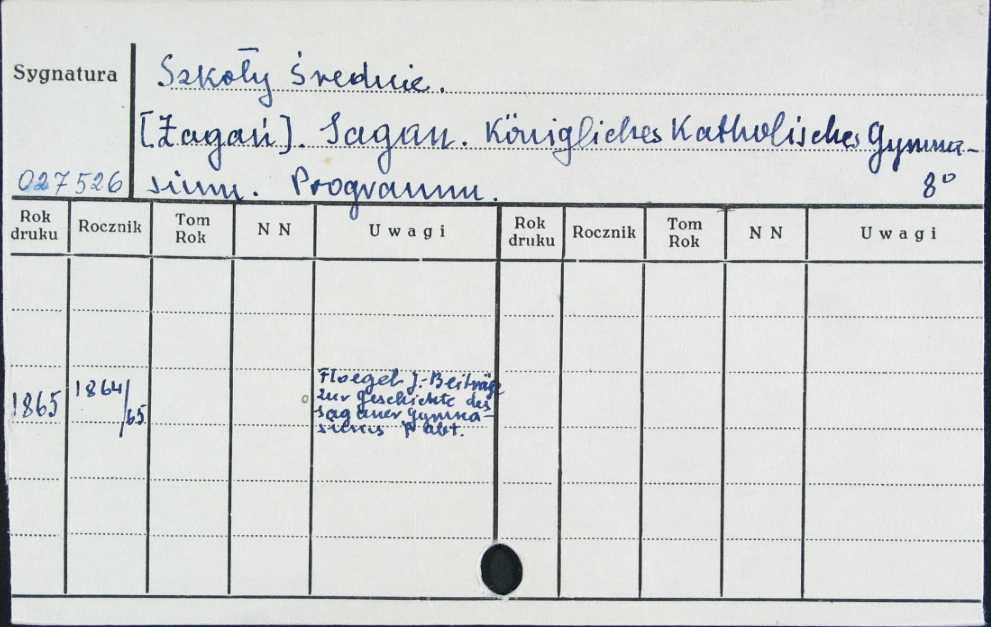 Sygnatura
Szkoły Średnie.
[Żagań]. Sagan. Königliches Katholisches Gymna-
027526 sium. Programm. 8°
Rok druku Rocznik Tom Rok N N Uwagi Rok druku Rocznik Tom Rok N N Uwagi
1865 1864/65
Floegel J.-Beiträge
zur Geschichte des
Saganer Gymna-
siums Abt.